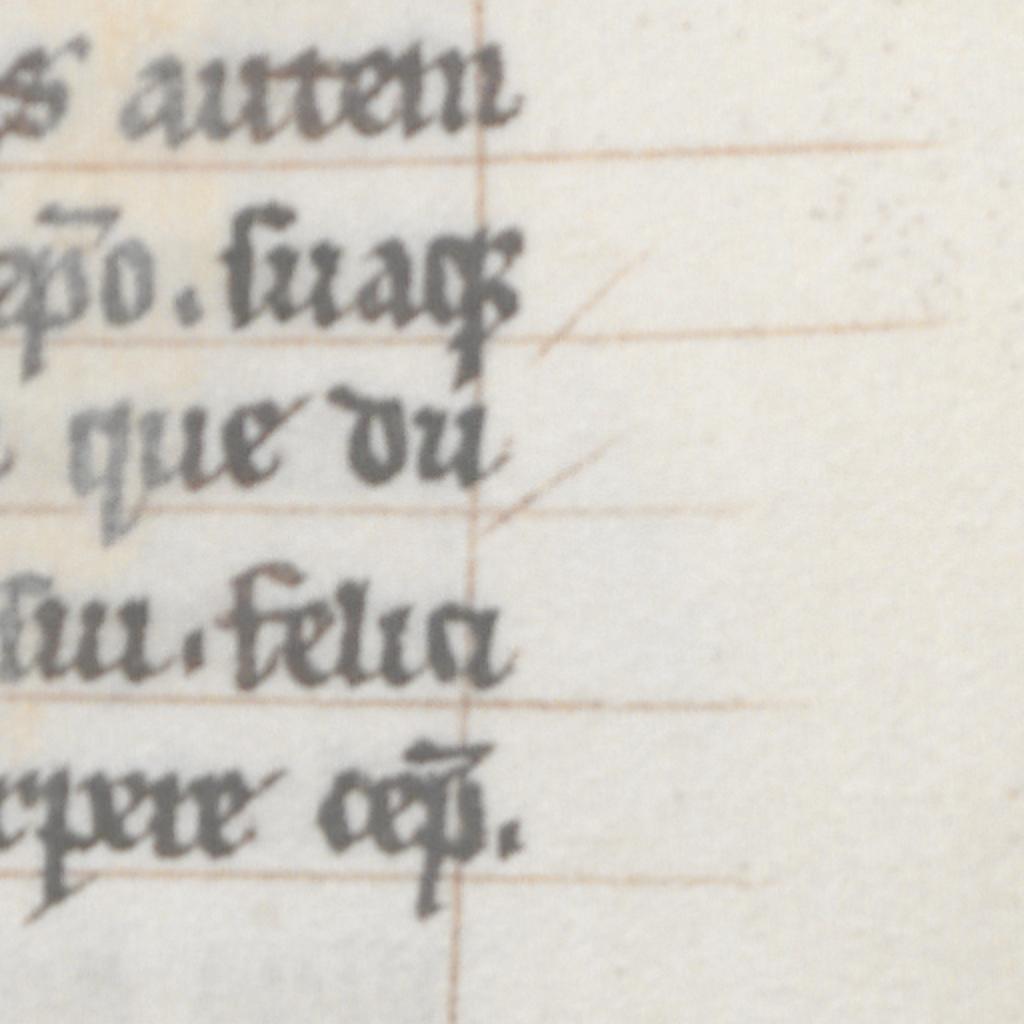 s autem
ep̄o. suaqꝫ
que dū
sui. felici
rpere cep̄.